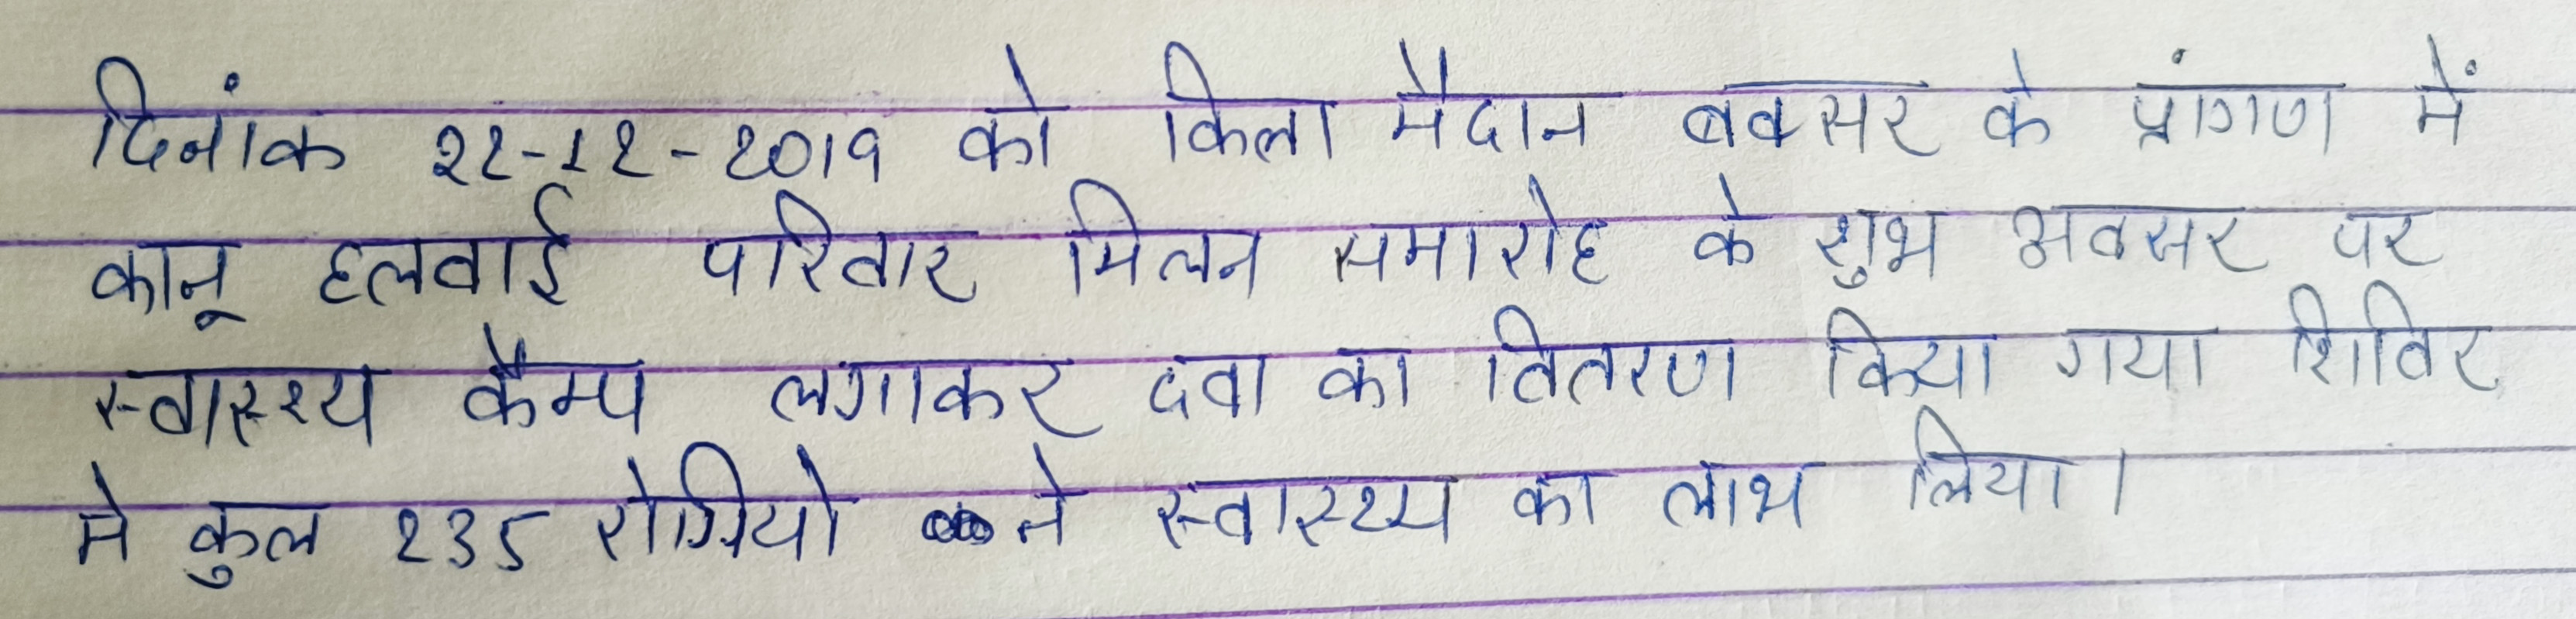 दिनांक 22-12-2019 को किला मैदान बक्सर के प्रांगण में
कानू हलवाई परिवार मिलन समारोह के शुभ अवसर पर
स्वास्थ्य कैम्प लगाकर दवा का वितरण किया गया शिविर
मे कुल 235 रोगियो ने स्वास्थ्य का लाभ लिया।